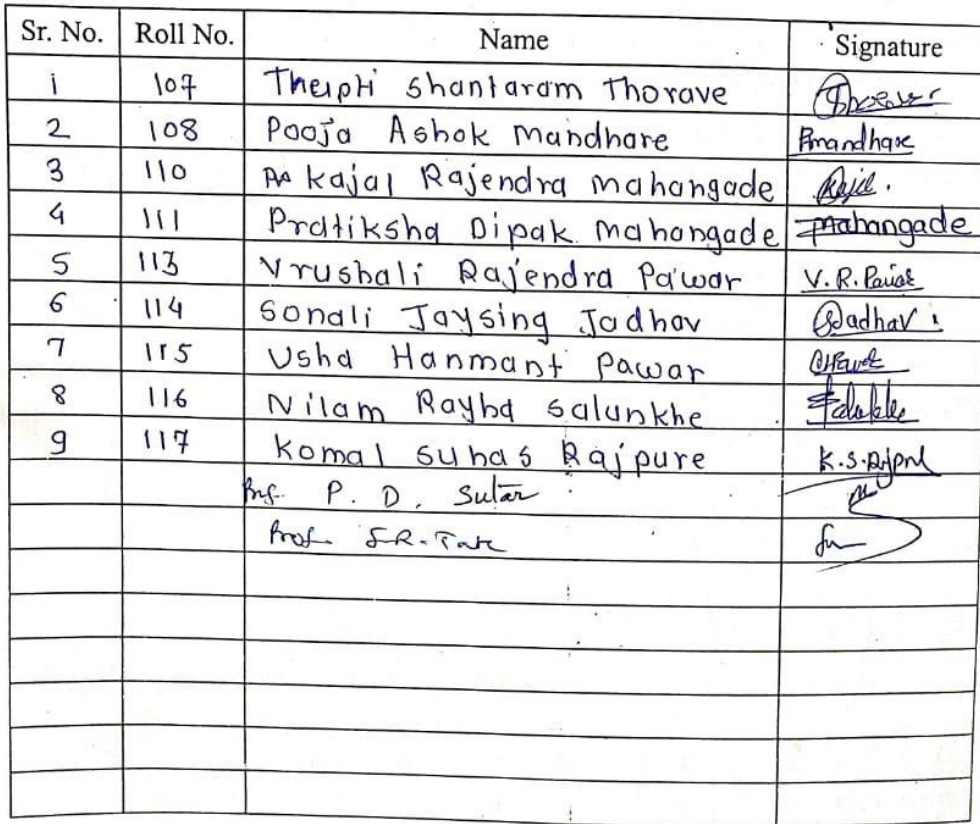 Sr. No. Roll No. Name Signature
1 107 Shantaram Thorave
2 108 Pooja Ashok Mandhare Pmandhare
3 110 Kajal Rajendra Mahangade Kajal.
4 111 Pratiksha Dipak Mahangade Mahangade
5 113 Vrushali Rajendra Pawar V. R. Pawar
6 114 Sonali Jaysing Jadhav Jadhav
7 115 Usha Hanmant Pawar
8 116 Nilam Rayba Salunkhe
9 117 Komal Suhas Rajpure K.S.Rajpure
Prof. P. D. Sutar
Prof. S.R. Tate